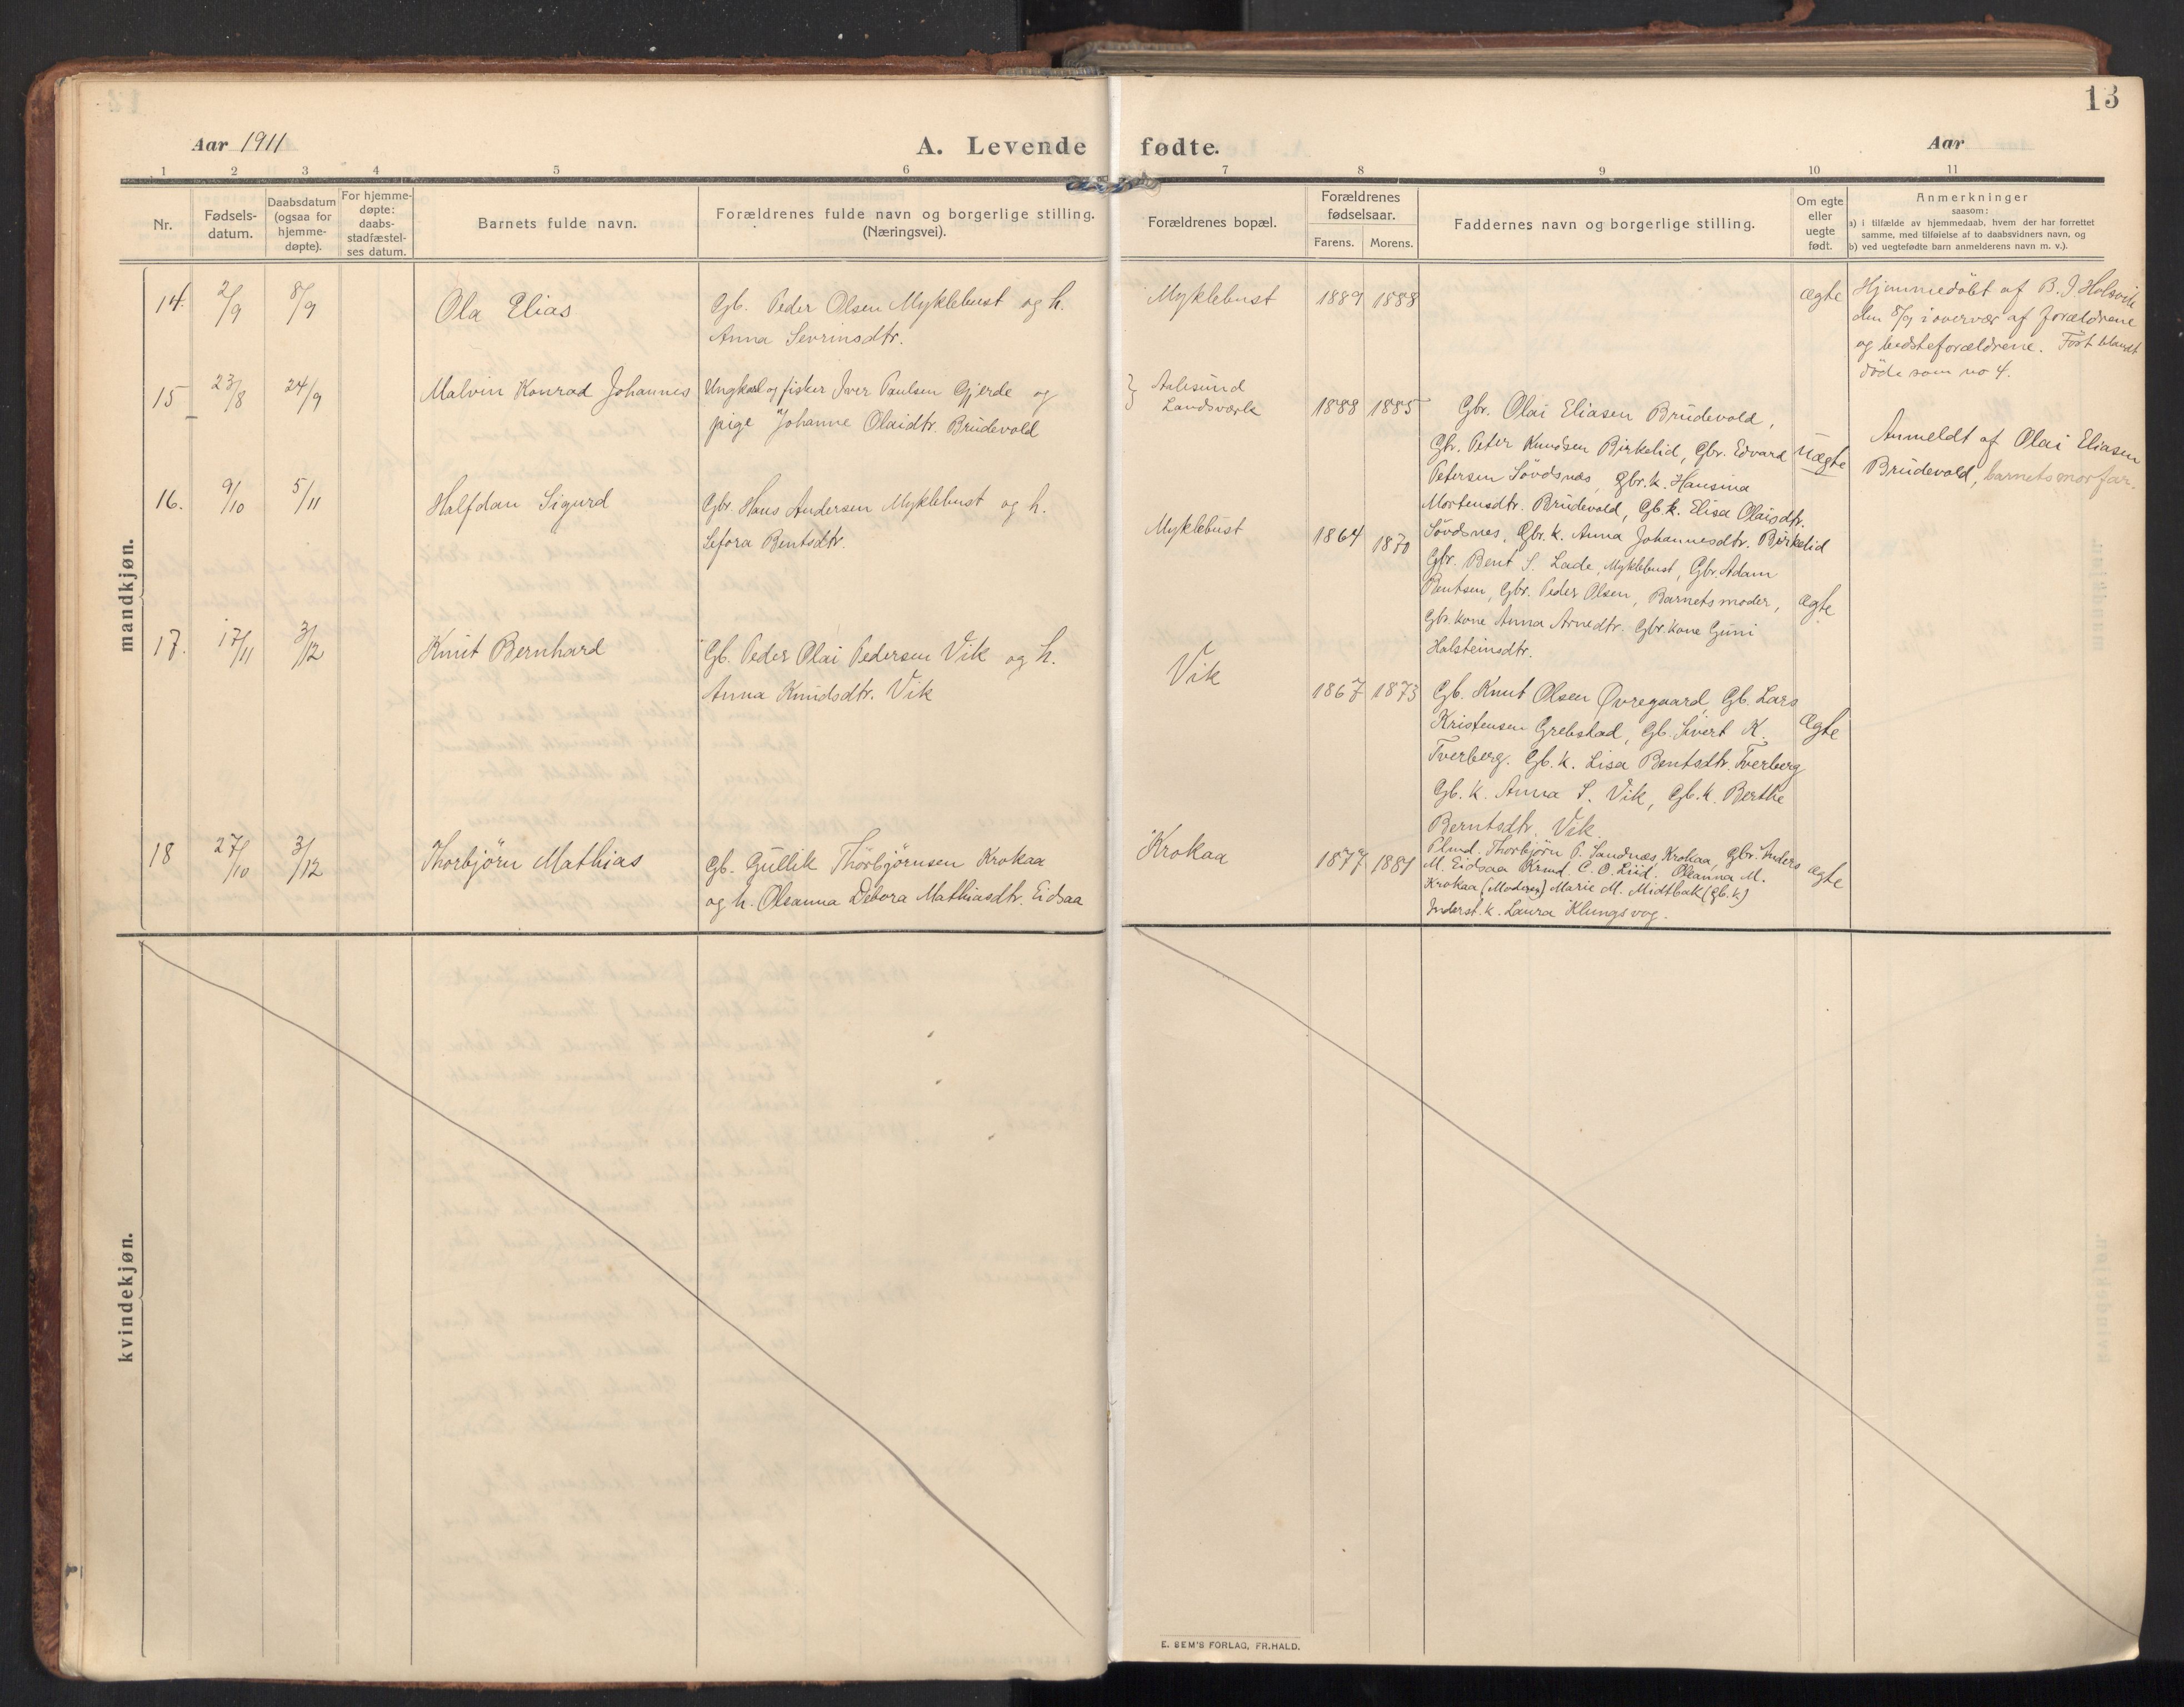 13
Aar 1911
A. Levende fødte.
Aar
1 2 3 4 5 6 7 8 9 10 11
Nr.
Fødsels-
datum.
Daabsdatum
(ogsaa for
hjemme-
døpte).
For hjemme-
døpte:
daabs-
stadfæstel-
ses datum.
Barnets fulde navn.
Forældrenes fulde navn og borgerlige stilling.
(Næringsvei).
Forældrenes bopæl.
Forældrenes
fødselsaar.
Farens. Morens.
Faddernes navn og borgerlige stilling.
Om egte
eller
uegte
født.
Anmerkninger
saasom:
a) i tilfælde av hjemmedaab, hvem der har forrettet
samme, med tilføielse af to daabsvidners navn, og
b) ved uegtefødte barn anmelderens navn m. v.).
mandkjøn.
14. 2/9 8/9
Ola Elias
Gb. Peder Olsen Myklebust og h.
Anna Sevrinsdtr.
Myklebust
1889 1888
ægte
Hjemmedöbt af B. J. Holsvik
den 8/9 i overvær af forældrene
og bedsteforældrene. Fört blandt
döde som no 4.
15 23/8 24/9
Malvin Konrad Johannes
Ungkarl og fisker Iver Paulsen Gjerde og
pige Johanne Olaidtr. Brudevold
} Aalesund
Landsværk
1888 1885
Gbr. Olai Eliasen Brudevold,
Gbr. Peter Knudsen Birkelid, Gbr. Edvard
Petersen Sövdsnæs, Gbr. k. Hansina
Mortensdtr. Brudevold, Gb. k. Elisa Olaisdtr.
Sövdsnes, Gbr. k. Anna Johannesdtr. Birkelid
Uægte
Anmeldt af Olai Eliasen
Brudevold, barnets morfar.
16. 9/10 5/11
Halfdan Sigurd
Gbr. Hans Andersen Myklebust og h.
Sefora Bentsdtr.
Myklebust
1864 1870
Gbr. Bent S. Lade, Myklebust, Gbr. Adam
Bentsen, Gbr. Peder Olsen, Barnets moder,
Gbr. kone Anna Arnedtr. Gbr. kone Guni
Holsteinsdtr.
ægte
17. 17/11 3/12
Knut Bernhard
Gb. Peder Olai Pedersen Vik og h.
Anna Knudsdtr. Vik
Vik
1867 1873
Gb. Knut Olsen Øvregaard, Gb. Lars
Kristensen Grebstad, Gb. Sivert K.
Tverberg. Gb. k. Lisa Bentsdtr. Tverberg
Gb. k. Anna S. Vik, Gb. k. Berthe
Berntsdtr. Vik.
Ægte
18 27/10 3/12
Thorbjörn Mathias
Gb. Gullik Thorbjörnsen Krokaa
og h. Oleanna Debora Mathiasdtr. Eidsaa
Krokaa
1877 1881
Thorbjörn P. Sandnæs, Krokaa, Gbr. Anders
M. Eidsaa C. O. Liid. Oleanna M.
Krokaa (Moderen) Marie M. Midtbak (Gb. k)
Inderst. k. Laura Klungsvog.
ægte
kvindekjøn.
E. SEM'S FORLAG, FR.HALD.